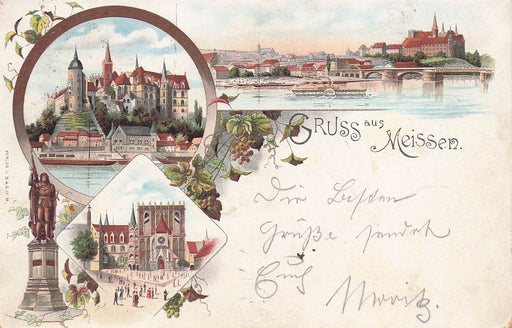 GRUSS aus
MEISSEN.
Die besten
Grüße sendet
Euch
Moritz.